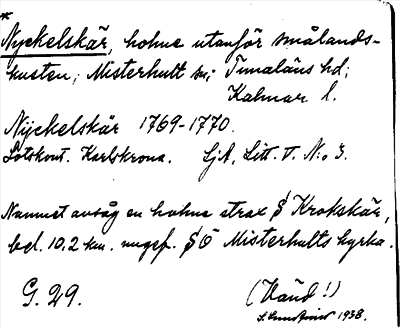 *
Nyckelskär, holme utanför smålands-
kusten; Misterhult sn; Tunaläns hd;
Kalmar l.
Nyckelskär 1769-1770.
Lotskont. Karlskrona. LjA, Litt. V. N:o 3.
Namnet avsåg en holme strax S Krokskär,
bel. 10.2 km. ungef. SÖ Misterhults kyrka.
G. 29.
(Vänd!)
1938.